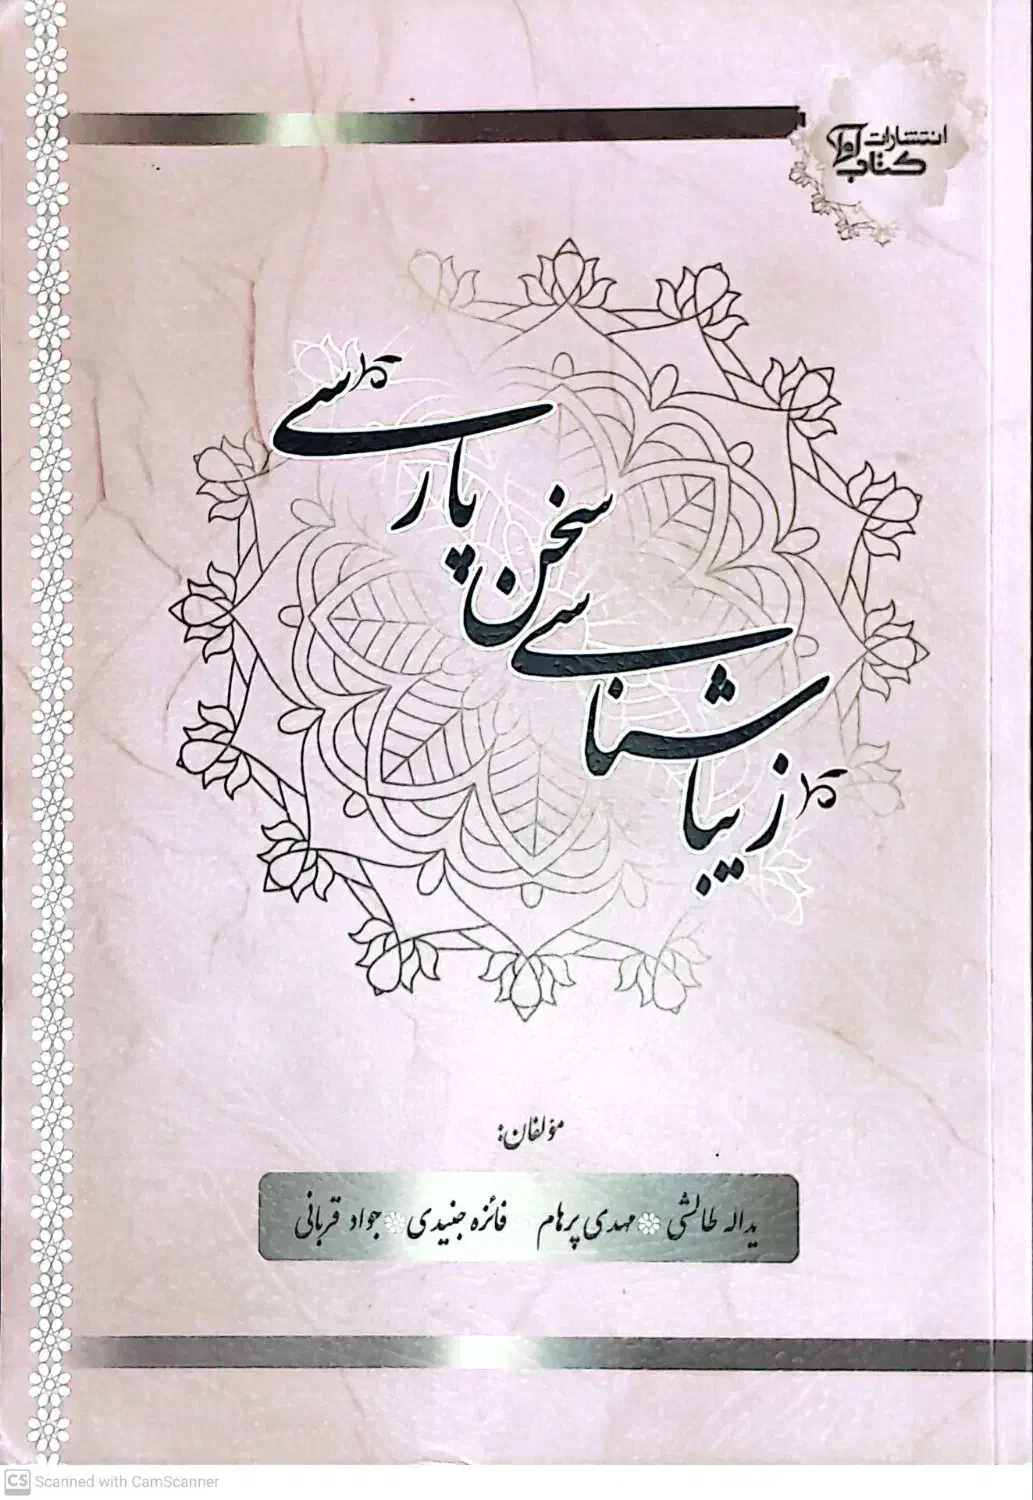 انتشارات
کتاب آوا
زیباشناسی
سخن
پارسی
مؤلفان:
یداله طالشی مهدی پرهام فائزه جنیدی جواد قربانی
CS Scanned with CamScanner